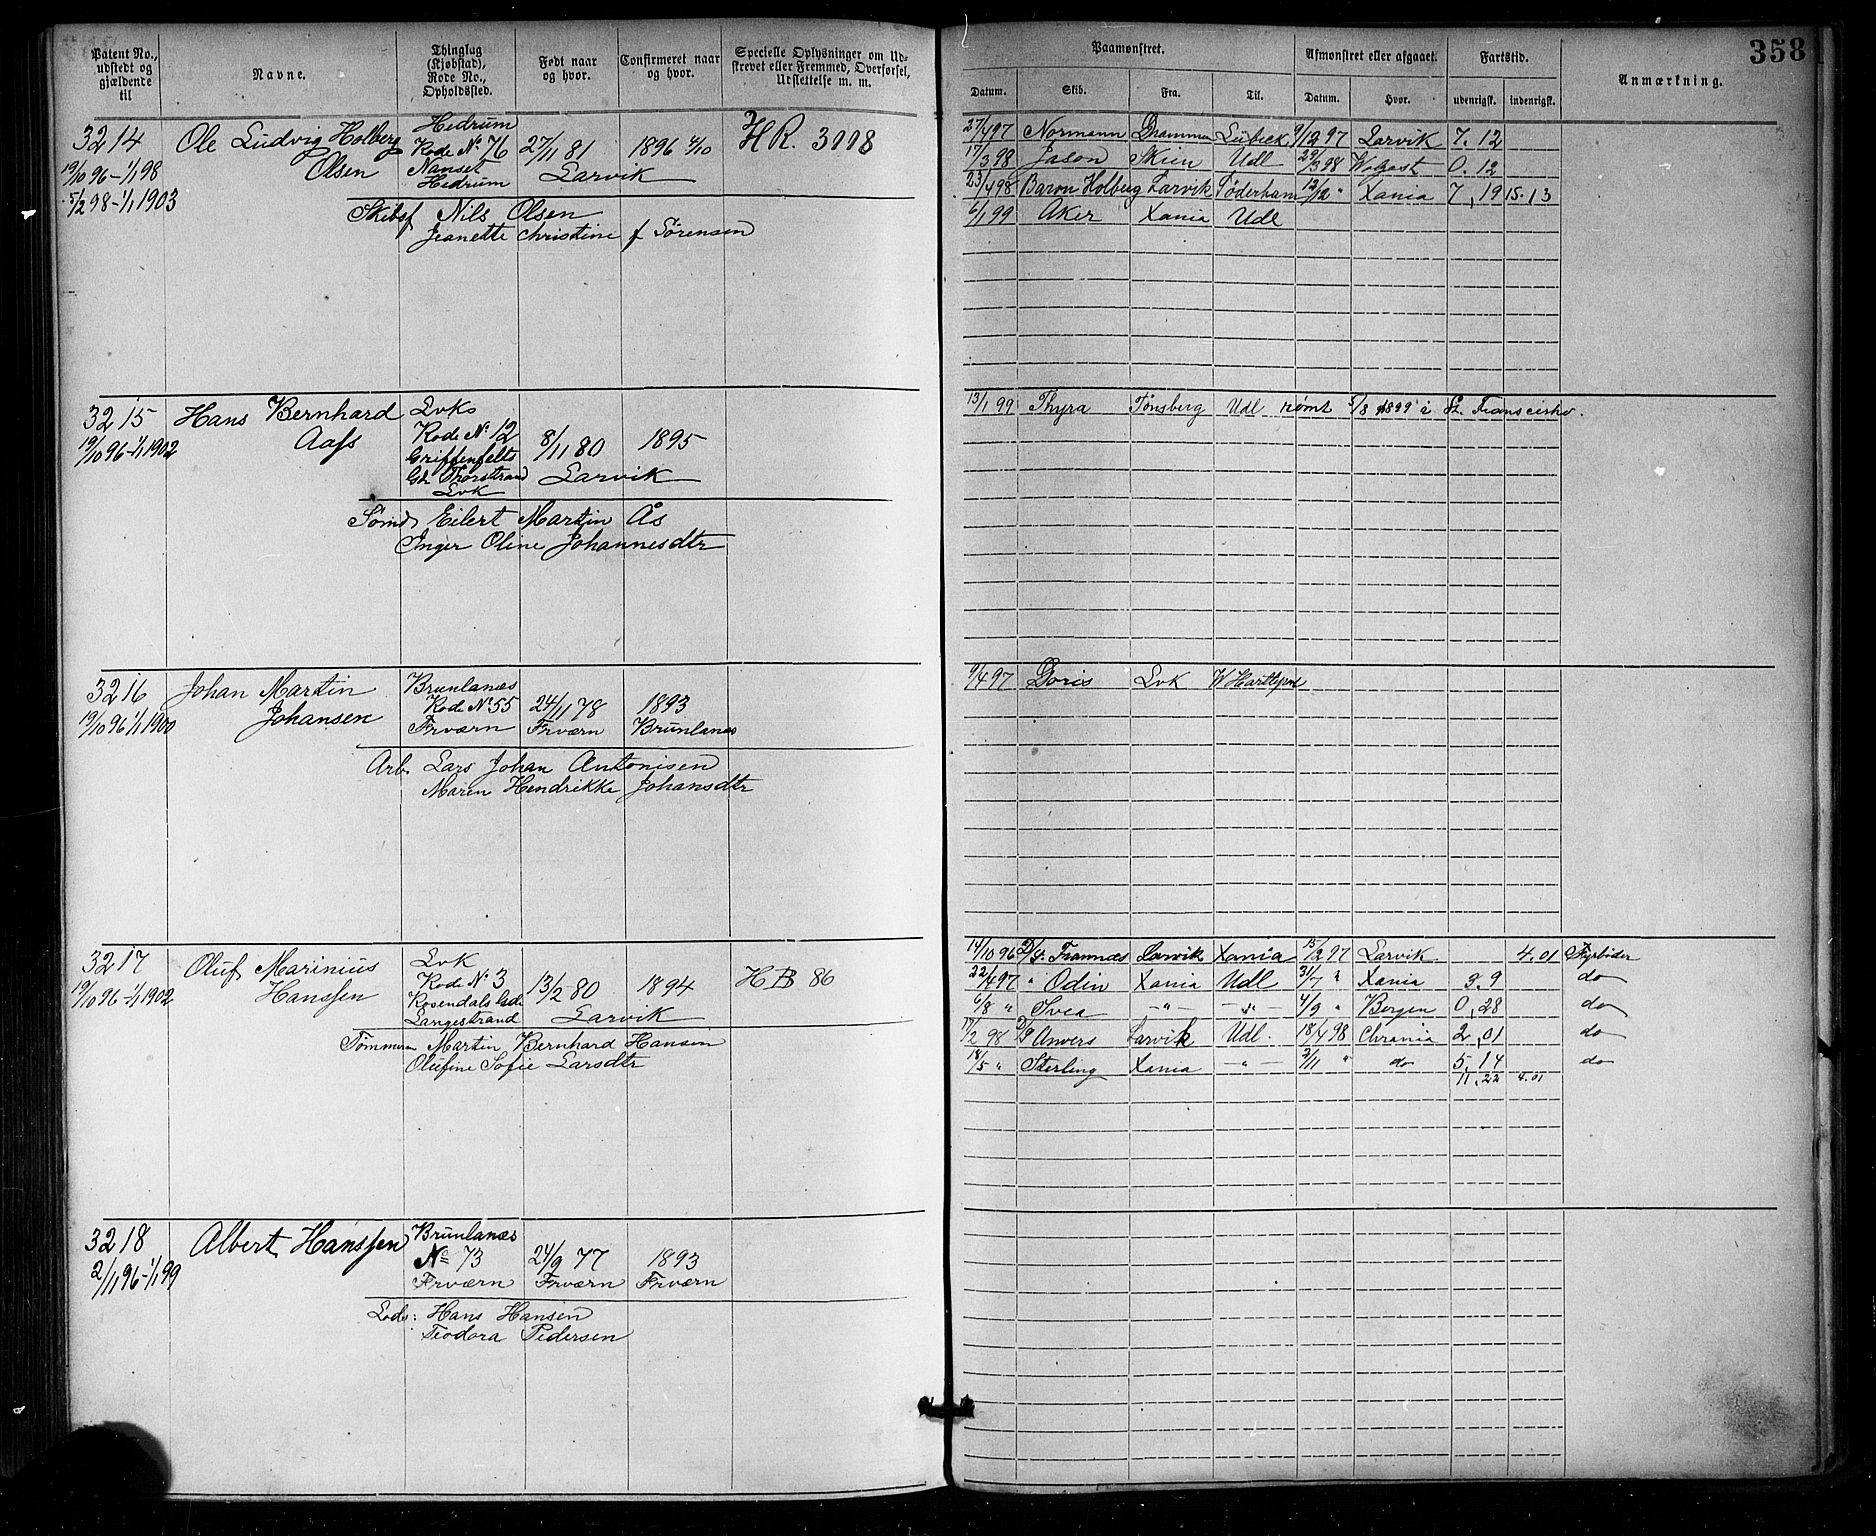 Patent No., udstedt og gjældende til
Navne.
Thinglag (Kjøbstad), Rode No., Opholdssted.
Født naar og hvor.
Confirmeret naar og hvor.
Specielle Oplysninger om Udskrevet eller Fremmed, Overførsel, Udslettelse m. m.
Paamønstret.
Afmønstret eller afgaaet.
Fartstid.
Anmærkning.
358
Datum. Skib. Fra. Til. Datum. Hvor. udenrigsk. indenrigsk.
3214 Ole Ludvig Holberg Hedrum
Olsen Rode No 76 27/11 81 1896 4/10 HR. 3008
19/10 96-1/1 98 Nanset Larvik
5/2 98-1/1 1903 Hedrum
Skibsf Nils Olsen
Jeanette Christine f Sørensen
27/4 97 Normann Drammen Lübeck 9/12 97 Larvik 7. 12
17/3 98 Jason Skien Udl 29/3 98 Wolgast 0. 12
23/4 98 Baron Holberg Larvik Söderham 12/12 " Xania 7, 19 15. 13
6/1 99 Aker Xania Udl
3215 Hans Bernhard Lvks
Aass Rode No 12 8/11 80 1895
19/10 96-1/1 1902 Griffenfelts
Gd Thorstrand Larvik
Lvk
Sømd Eilert Martin Ås
Inger Oline Johannesdtr
13/1 99 Thyra Tønsberg Udl rømt 5/8 1899 i St. Franscisko.
3216 Johan Martin Brunlanæs
Johansen Rode No 55 24/11 78 1893
19/10 96 1/1 1900 Frværn Frværn Brunlanæs
Arb. Lars Johan Antonisen
Maren Hendrikke Johansdtr
9/4 97 Doris Lvk W Hartlpol
3217 Oluf Marinius Lvk
Hanssen Rode No 3 13/2 80 1894 HB 86
19/10 96-1/1 1902 Rosendals Gade
Langestrand Larvik
Tømmerm Martin Bernhard Hansen
Olufine Sofie Larsdtr
14/10 96 D/S. Framnæs Larvik Xania 15/2 97 Larvik 4. 01 Fyrbøder
22/4 97 " Odin Xania Udl 31/7 " Xania 3. 9 do
6/8 " Svea -"- -"- 4/9 " Bergen 0, 28 do
17/2 98 D/S Anvers Larvik Udl. 18/4 98 Chrania 2, 01 do
18/5 " Sterling Xania -"- 2/11 " do 5. 14 do
11. 22 4. 01
3218 Albert Hanssen Brunlanæs
No 73 24/9 77 1893
2/11 96-1/1 99 Frværn Frværn Frværn
Lods: Hans Hansen
Teodora Pedersen